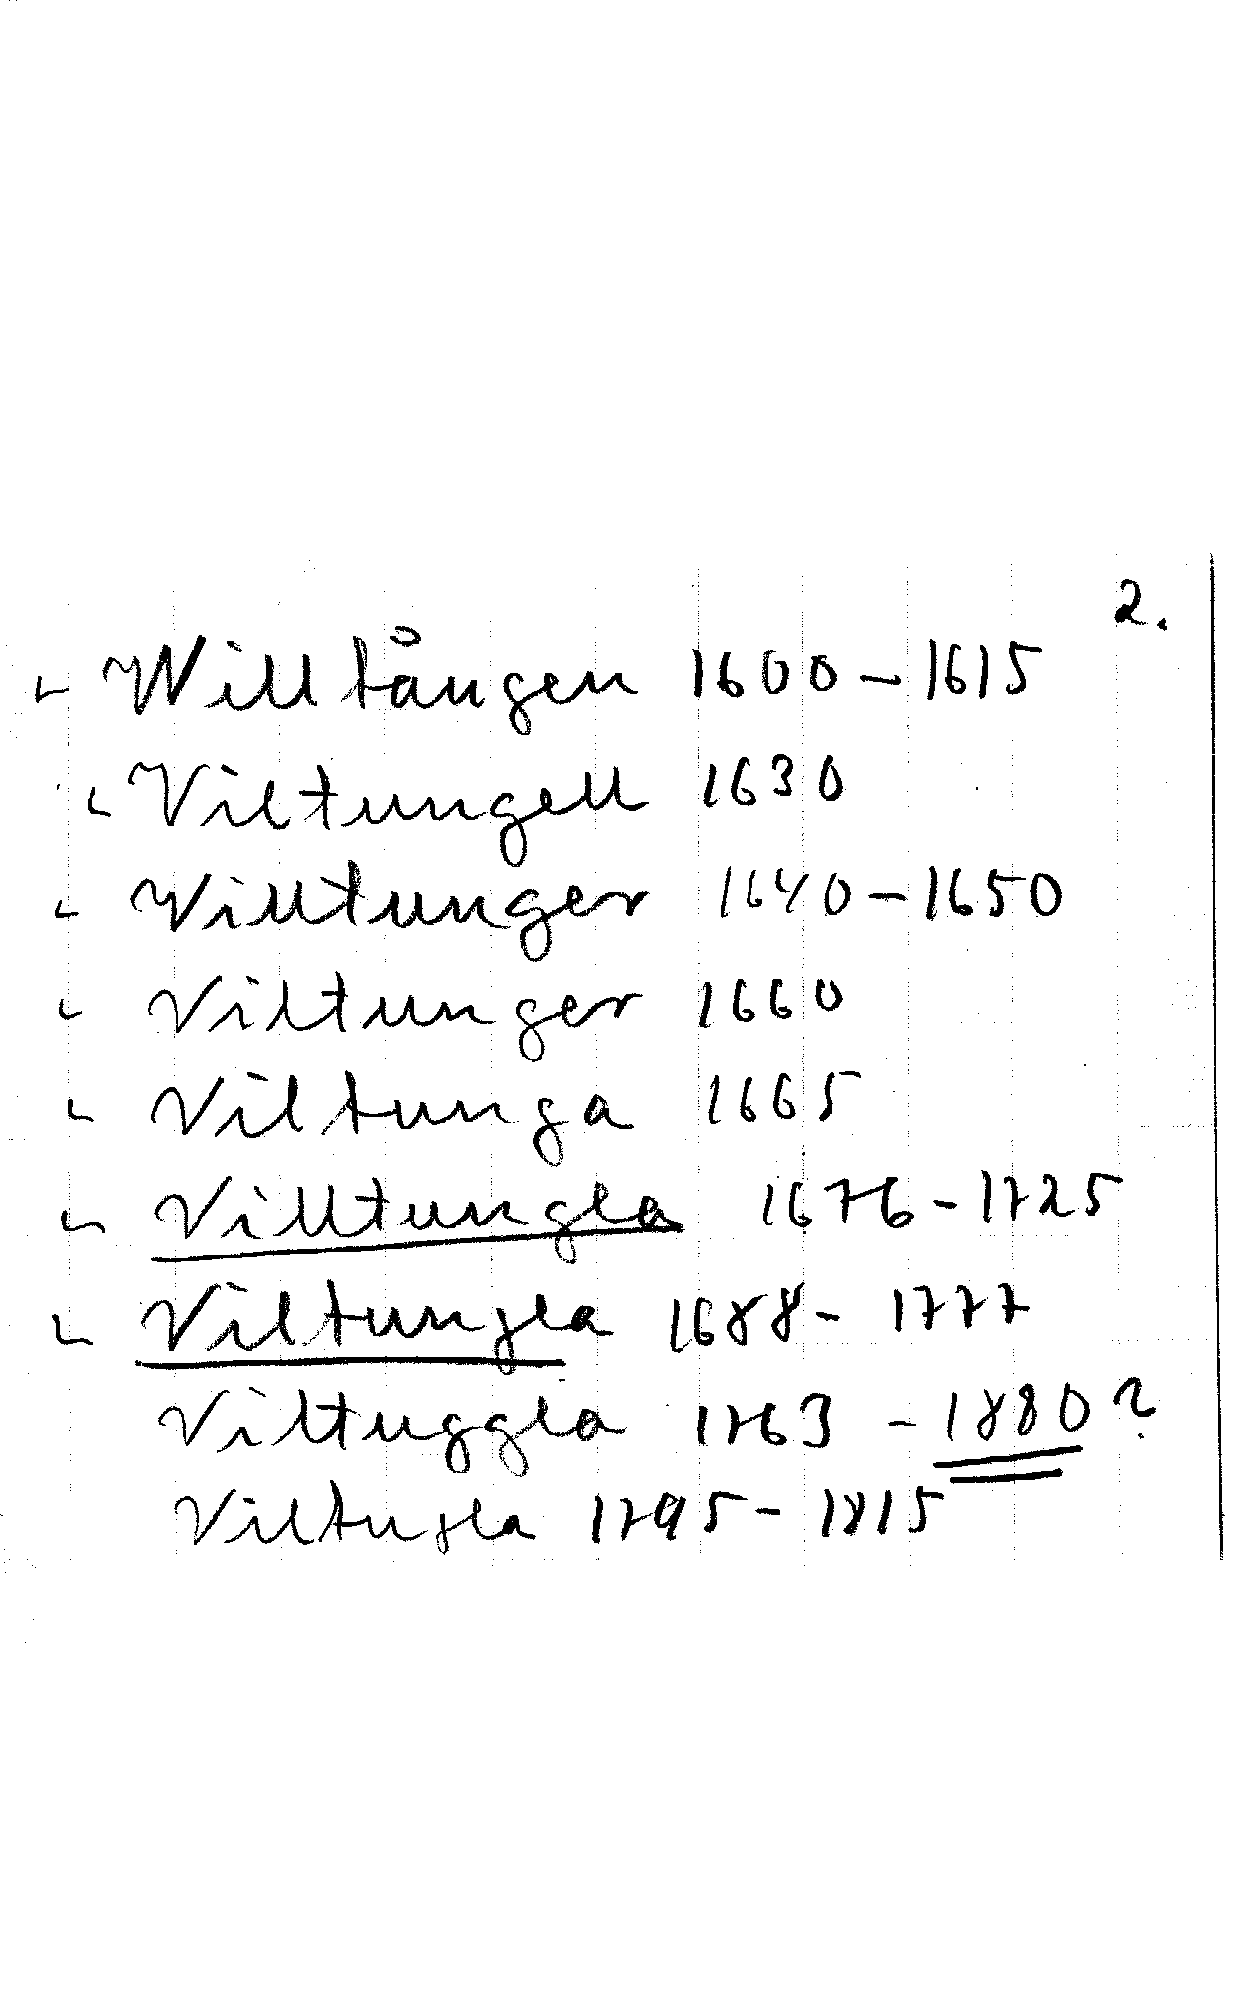 2.
Willtången 1600 – 1615
Viltungell 1630
Willtunger 1640 – 1650
Viltunger 1660
Viltunga 1665
Villtungla 1676 – 1725
Viltungla 1688 – 1777
Viltuggla 1763 – 1880?
Viltugla 1795 – 1815